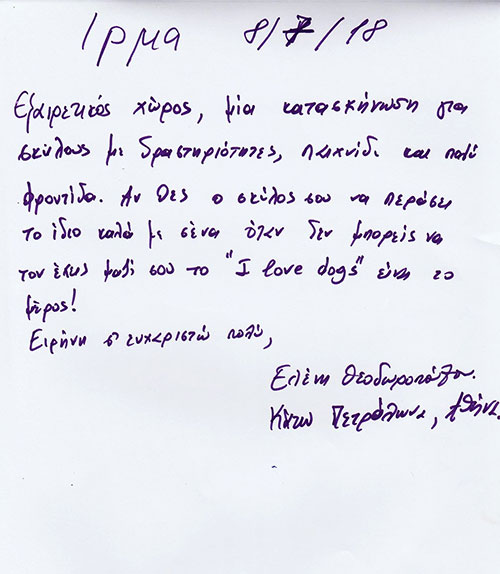 Ιρμα 8/7/18
Εξαιρετικός χώρος, μία κατασκήνωση για
σκύλους με δραστηριότητες, παιχνίδι και πολύ
φροντίδα. Αν θες ο σκύλος σου να περάσει
το ίδιο καλά με σένα όταν δεν μπορείς να
τον έχεις μαζί σου το "I love dogs" είναι το
μέρος!
Ειρήνη σ' ευχαριστώ πολύ,
Ελένη Θεοδωροπούλου.
Κάτω Πετράλωνα, Αθήνα.